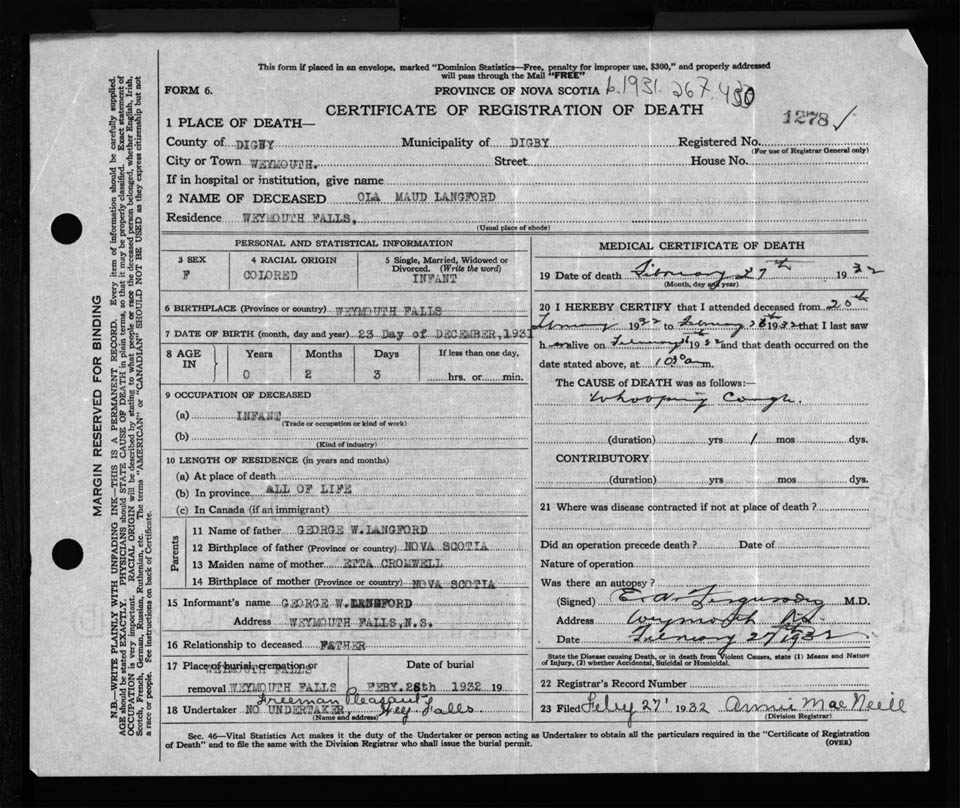 This form if placed in an envelope, marked "Dominion Statistics—Free, penalty for improper use, $300," and properly addressed
will pass through the Mail "FREE"
FORM 6.
PROVINCE OF NOVA SCOTIA b.1931.267.430
CERTIFICATE OF REGISTRATION OF DEATH
1278 ✓
1 PLACE OF DEATH—
County of DIGBY Municipality of DIGBY Registered No.
(For use of Registrar General only)
City or Town WEYMOUTH. Street House No.
If in hospital or institution, give name
2 NAME OF DECEASED OLA MAUD LANGFORD
Residence WEYMOUTH FALLS.
(Usual place of abode)
MARGIN RESERVED FOR BINDING
N.B.—WRITE PLAINLY WITH UNFADING INK—THIS IS A PERMANENT RECORD. Every item of information should be carefully supplied.
AGE should be stated EXACTLY. PHYSICIANS should STATE CAUSE OF DEATH in plain terms, so that it may be properly classified. Exact statement of
OCCUPATION is very important. RACIAL ORIGIN will be described by stating to what people or race the deceased person belonged, whether English, Irish,
Scotch, French, German, Russian, Ruthenian, etc. The terms "AMERICAN" or "CANADIAN" SHOULD NOT BE USED as they express citizenship but not
a race or people. See instructions on back of Certificate.
PERSONAL AND STATISTICAL INFORMATION
3 SEX
F
4 RACIAL ORIGIN
COLORED
5 Single, Married, Widowed or
Divorced. (Write the word)
INFANT
6 BIRTHPLACE (Province or country) WEYMOUTH FALLS
7 DATE OF BIRTH (month, day and year) 23 Day of DECEMBER,1931
8 AGE
IN
Years Months Days If less than one day,
0 2 3 hrs. or min.
9 OCCUPATION OF DECEASED
(a) INFANT
(Trade or occupation or kind of work)
(b)
(Kind of industry)
10 LENGTH OF RESIDENCE (in years and months)
(a) At place of death
(b) In province ALL OF LIFE
(c) In Canada (if an immigrant)
Parents
11 Name of father GEORGE W.LANGFORD
12 Birthplace of father (Province or country) NOVA SCOTIA
13 Maiden name of mother ETTA CROMWELL
14 Birthplace of mother (Province or country) NOVA SCOTIA
15 Informant's name GEORGE W.LANGFORD
Address WEYMOUTH FALLS,N.S.
16 Relationship to deceased FATHER
17 Place of burial, cremation or Date of burial
WEYMOUTH FALLS
removal WEYMOUTH FALLS FEBY.28th 1932 19
Freeman Pleasant
18 Undertaker NO UNDERTAKER Wey. Falls
(Name and address)
MEDICAL CERTIFICATE OF DEATH
19 Date of death February 27th 1932
(Month, day and year)
20 I HEREBY CERTIFY that I attended deceased from 20th
February 1932 to February 1932 that I last saw
h er alive on February 1932 and that death occurred on the
date stated above, at m.
The CAUSE OF DEATH was as follows:—
Whooping Cough.
(duration) yrs 1 mos dys.
CONTRIBUTORY
(duration) yrs mos dys.
21 Where was disease contracted if not at place of death?
Did an operation precede death? Date of
Nature of operation
Was there an autopsy?
(Signed) M.D.
Address Weymouth NS
Date February 27th 1932
State the Disease causing Death, or in death from Violent Causes, state (1) Means and Nature
of Injury, (2) whether Accidental, Suicidal or Homicidal.
22 Registrar's Record Number
23 Filed Feby 27 1932 Annie MacNeill
(Division Registrar)
Sec. 46—Vital Statistics Act makes it the duty of the Undertaker or person acting as Undertaker to obtain all the particulars required in the "Certificate of Registration
of Death" and to file the same with the Division Registrar who shall issue the burial permit.
(OVER)